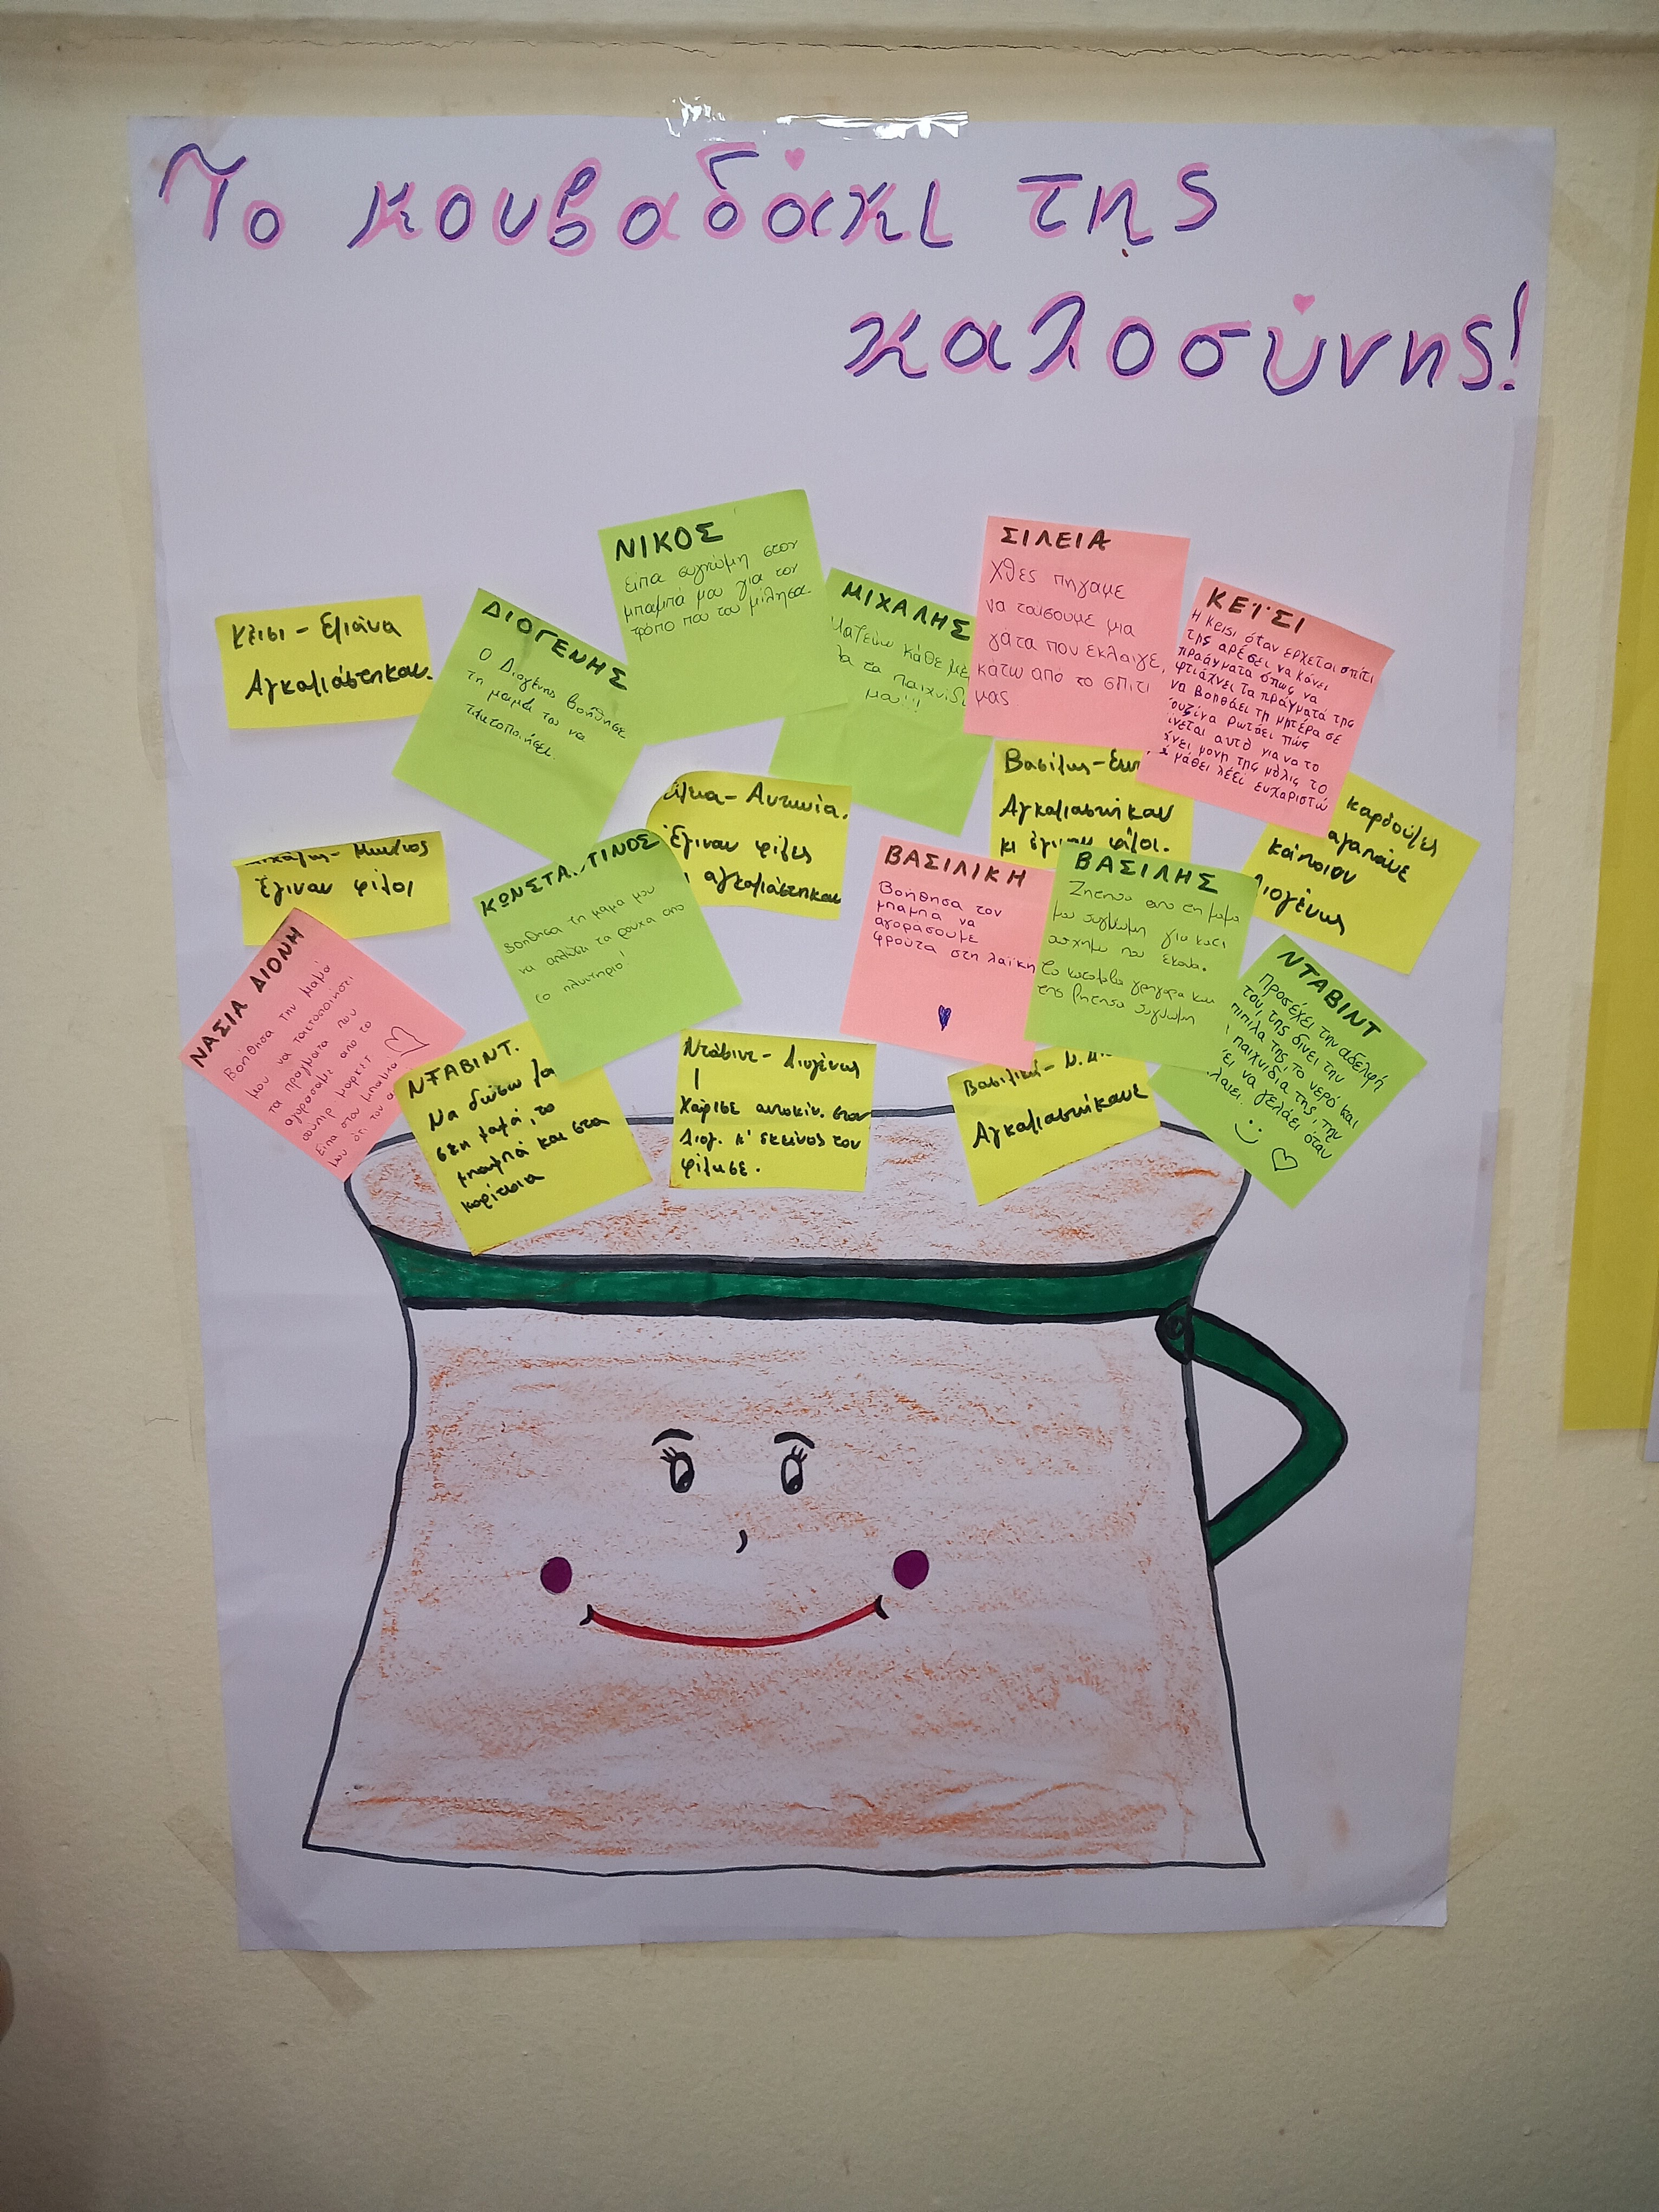 Το κουβαδάκι της
καλοσύνης!
ΝΙΚΟΣ
Είπα συγνώμη στον
μπαμπά μου για τον
τρόπο που του μίλησα.
ΣΙΛΕΙΑ
Χθες πήγαμε
να ταΐσουμε μια
γάτα που έκλαιγε,
κάτω από το σπίτι
μας
ΚΕΪΣΙ
Η Κεισι όταν ερχεται σπίτι
της αρέσει να κάνει
πράγματα όπως να
φτιάχνει τα πράγματά της
να βοηθάει τη μητέρα σε
κουζίνα ρωτάει πώς
γίνεται αυτό για να το
κάνει μονη της μόλις το
μάθει λέξει ευχαριστώ
ΜΙΧΑΛΗΣ
Μαζεύω κάθε
τα παιχνίδι
μου!!!
ΔΙΟΓΕΝΗΣ
Ο Διογένης βοήθησε
τη μαμά του να
τακτοποιήσει.
Κέισι - Ελιάνα
Αγκαλιάστηκαν.
Βασίλης -
Αγκαλιαστήκαν
κι έγιναν φίλοι.
- Αντωνία.
Έγιναν φίλες
αγκαλιάστηκαν
καρδούλες
αγαπάνε
κάποιον
Διογένης
έγιναν φίλοι
ΚΩΝΣΤΑ..ΤΙΝΟΣ
Βοήθησα τη μαμά μου
να απλώσει τα ρούχα απο
το πλυντηριο!
ΒΑΣΙΛΙΚΗ
Βοήθησα τον
μπαμπα να
αγοράσουμε
φρούτα στη λαϊκή
ΒΑΣΙΛΗΣ
Ζήτησα απο τη μαμα
μου συγνώμη για κατι
ασχημο που έκανα.
Το καταλαβα γρήγορα και
της ζητησα συγνώμη
ΝΑΣΙΑ ΔΙΟΝΗ
Βοήθησα την μαμά
μου να τακτοποιήσει
τα πράγματα που
αγοράσαμε από το
σουπερ μαρκετ
Είπα στον μπαμπά
μου ότι τον α
ΝΤΑΒΙΝΤ
Προσέχει την αδελφή
του, της δίνει την
πιπίλα της, το νερό και
παιχνίδια της, την
να γελάει όταν
κλαίει.
ΝΤΑΒΙΝΤ.
Να δώσω
στη μαμά, το
μπαμπά και στα
κορίτσια
Ντάβιντ - Διογένης
Χάρισε αυτοκίν. στον
Διογ. κ' εκείνος τον
φίλησε.
Βασιλική -
Αγκαλιαστήκανε